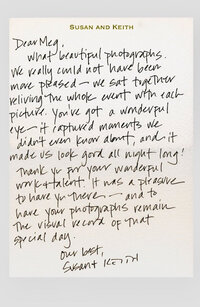 SUSAN AND KEITH
Dear Meg,
What beautiful photographs.
We really could not have been
more pleased — we sat together
reliving the whole event with each
picture. You've got a wonderful
eye — it captured moments we
didn't even know about, and it
made us look good all night long!
Thank you for your wonderful
work & talent. It was a pleasure
to have you there — and to
have your photographs remain
the visual record of that
special day.
Our best,
Susan & KEITH